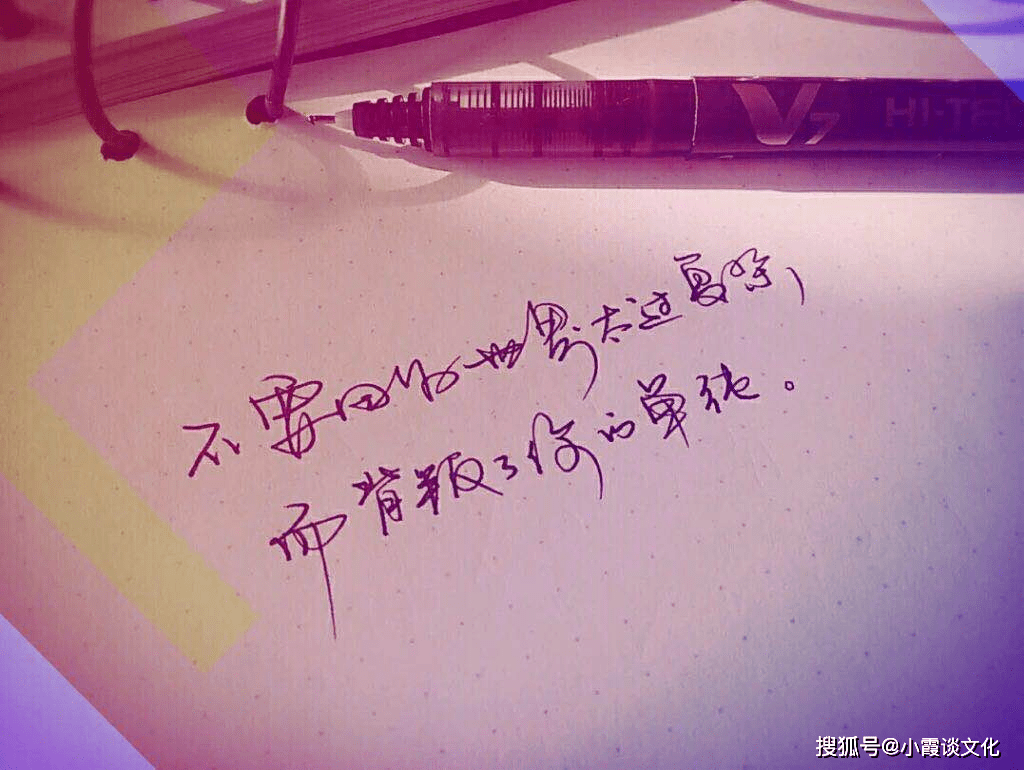 V7 HI-TEC
不要因为世界太过复杂,
而背叛了你的单纯。
搜狐号@小霞谈文化